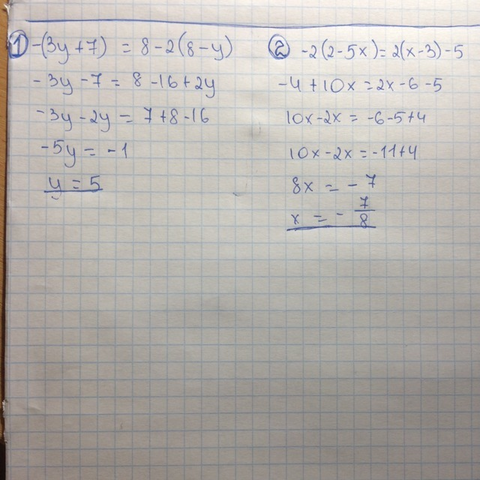 ① -(3y+7) = 8-2(8-y)
-3y-7 = 8-16+2y
-3y-2y = 7+8-16
-5y = -1
y = 5
② -2(2-5x)=2(x-3)-5
-4+10x=2x-6-5
10x-2x = -6-5+4
10x-2x = -11+4
8x = -7
x = -7/8